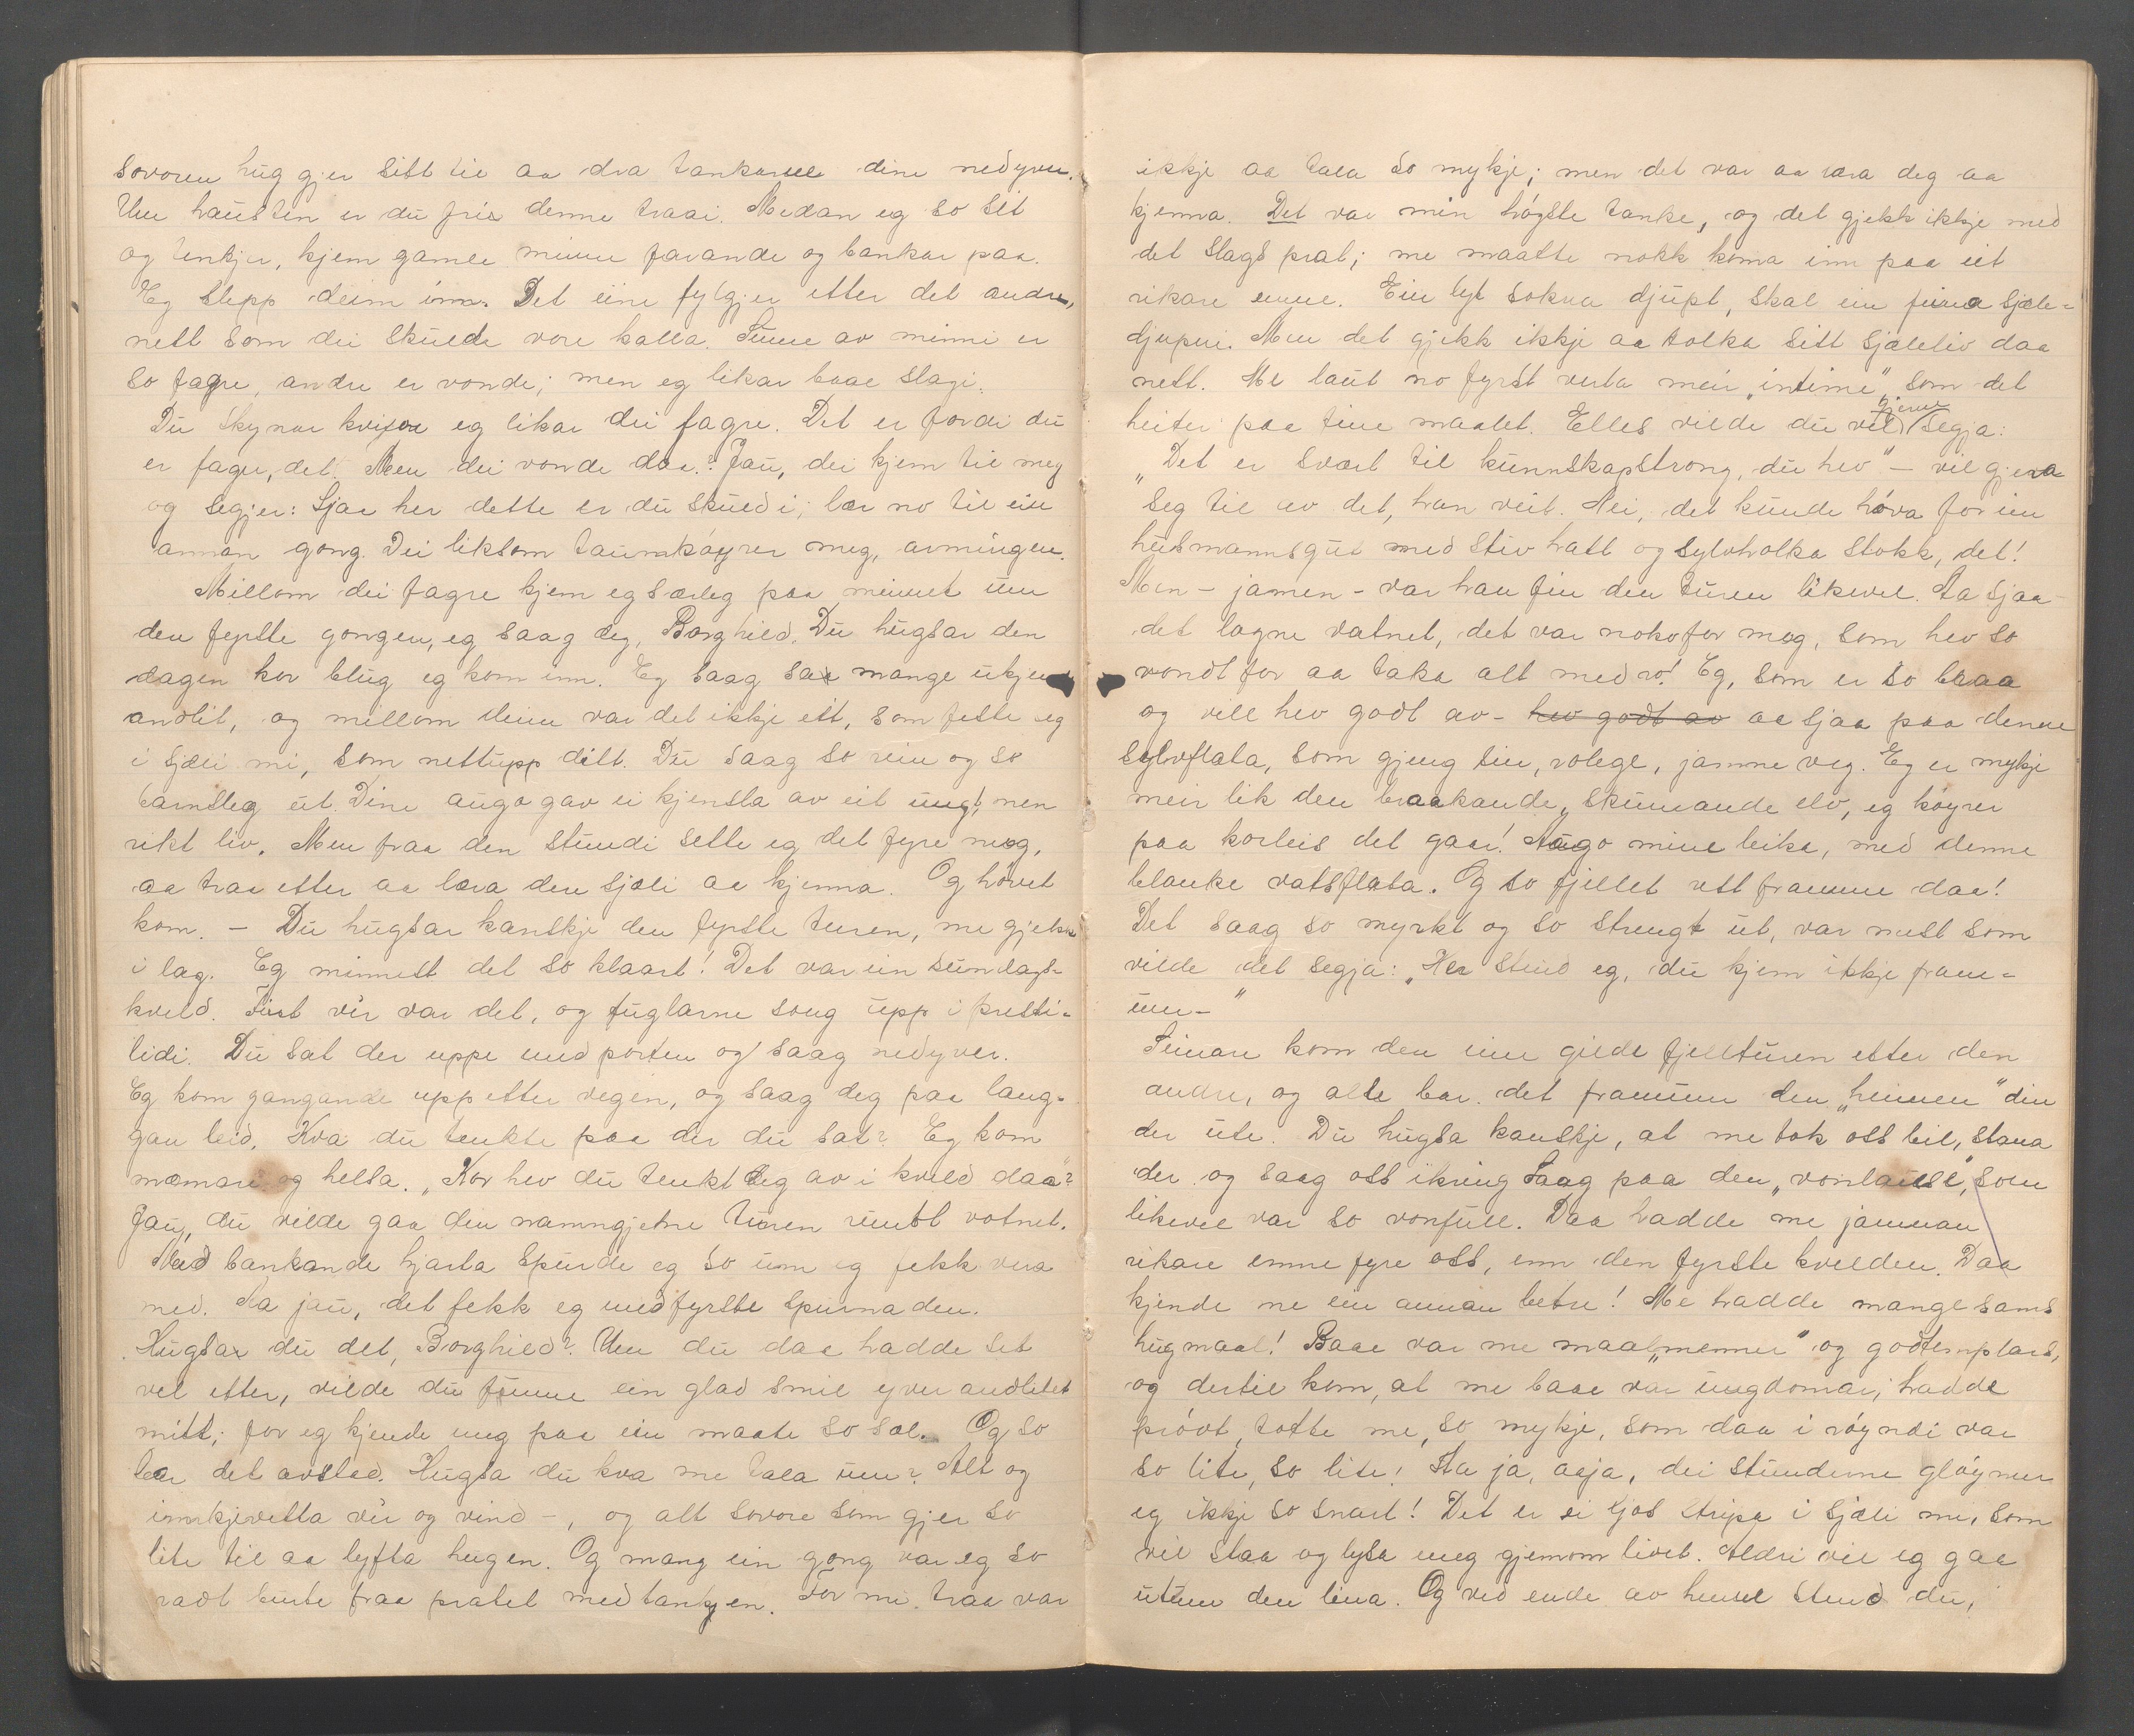 sovoren hug gjer sitt til aa dra tankarne dine nedyver.
Um hausten er du frix denne traai. Medan eg so sit
og tenkjer, kjem gamle minne farande og bankar paa.
Eg slepp deim inn. Det eine fylgjer etter det andre,
nett som dei skulde vore kalla. Sume av minni er
so fagre, andre er vonde; men eg likar baae slagi.
Du skynar kvifor eg likar dei fagre. Det er fordi du
er fager, det. Men dei vonde daa? Jau, dei kjem til meg
og segjer: Sjaa her dette er du skuld i; lær no til ein
annan gong. Dei liksom taumkøyrer meg, armingen.
Millom dei fagre kjem eg særleg paa minnet um
den fyrste gongen, eg saag deg, Borghild. Du hugsar den
dagen kor blug eg kom inn. Eg saag saa mange ukjende
andlit, og millom deim var det ikkje ett, som feste seg
i sjæli mi, som nettupp ditt. Du saag so rein og so
barnsleg ut. Dine augo gav ei kjensla av eit ungt, men
rikt liv. Men fraa den stundi sette eg det fyre meg,
aa traa etter aa læra den sjæli aa kjenna. Og høvet
kom. - Du hugsar kanskje den fyrste turen, me gjekk
i lag. Eg minnest det so klaart! Det var ein sundags-
kveld. Fint vêr var det, og fuglarne song upp i presti-
lidi. Du sat der uppe med porten og saag nedyver.
Eg kom gangande uppetter vegen, og saag deg paa lang-
gan leid. Kva du tenkte paa der du sat? Eg kom
næmare og helsa. „Kor hev du tenkt deg av i kveld daa"?
Jau, du vilde gaa den namngjetne turen rundt vatnet.
Med bankande hjarta spurde eg so um eg fekk vera
med. Aa jau, det fekk eg med fyrste spurnaden.
Hugsar du det, Borghild? Um du daa hadde set
vel etter, vilde du funne ein glad smil yver andletet
mitt; for eg kjende meg paa ein maate so sæl. Og so
bar det avstad. Hugsa du kva me tala um? Alt og
innkjevetta vêr og vind -, og alt sovore som gjer so
lite til aa lyfta hugen. Og mang ein gong var eg so
radt burte fraa pratet med tankjen. For me. traa var
ikkje aa tala so mykje; men det var aa læra deg aa
kjenna. Det var min høgste tanke, og det gjekk ikkje med
det slags prat; me maatte nokk koma inn paa eit
rikare emne. Ein lyt søkva djupt, skal ein finna sjæle-
djupni. Men det gjekk ikkje aa tolka sitt sjæleliv daa
nett. Me laut no fyrst verta meir „intime", som det
heiter paa fine maalet. Elles vilde du vel gjerne segja:
„Det er svært til kunnskapstrong, du hev" - vil gjera
seg til av det, han veit. Nei, det kunde høva for ein
husmannsgut med stiv hatt og sylvholka stokk, det!
Men - jamen - var han fin den turen likevel. Aa sjaa
det logne vatnet, det var noko for meg, som hev so
vondt for aa taka alt med ro! Eg, som er so braa
og vill hev godt av - hev godt av aa sjaa paa denne
sylvflata, som gjeng sin, rolege, jamne veg. Eg er mykje
meir lik den braakande, skumande elv, eg køyrer
paa korleis det gaar! Augo mine leika, med denne
blanke vatsflata. Og so fjellet rett framme daa!
Det saag so myrkt og so strengt ut, var mest som
vilde det segja: „Her stend eg, du kjem ikkje fram-
um-"
Seinare kom den eine gilde fjellturen etter den
andre, og alle bar det framum den „heimen" din
der ute. Du hugsa kanskje, at me tok oss til, stana
der og saag oss ikring saag paa den „vonlause", som
likevel var so vonfull. Daa hadde me jamnan
rikare emne fyre oss, enn den fyrste kvelden. Daa
kjende me ein annan betre! Me hadde mange sams
hugmaal! Baae var me maal„menner" og godtemplars,
og dertil kom, at me baae var ungdomar; hadde
prøvt, totte me, so mykje, som daa i røyndi var
so lite, so lite! Aa ja, aaja, dei stunderne gløymer
eg ikkje so snart! Det er ei ljos stripa i sjæli mi, som
vil staa og lysa meg gjenom livet. Aldri vil eg gaa
utum den lina. Og ved ende av henne stend du,